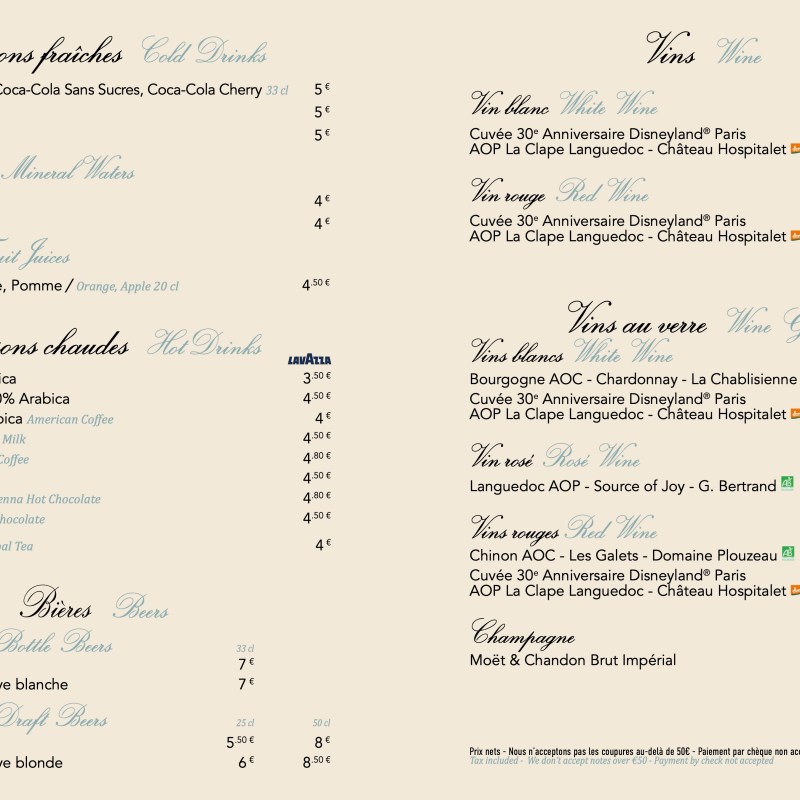 ons fraîches Cold Drinks
Coca-Cola Sans Sucres, Coca-Cola Cherry 33 cl 5 €
5 €
5 €
Mineral Waters
4 €
4 €
uit Juices
e, Pomme / Orange, Apple 20 cl 4.50 €
ons chaudes Hot Drinks
LAVAZZA
ica 3.50 €
0% Arabica 4.50 €
bica American Coffee 4 €
Milk 4.50 €
Coffee 4.80 €
4.50 €
enna Hot Chocolate 4.80 €
hocolate 4.50 €
bal Tea 4 €
Bières Beers
Bottle Beers 33 cl
7 €
ve blanche 7 €
Draft Beers 25 cl 50 cl
5.50 € 8 €
ve blonde 6 € 8.50 €
Vins Wine
Vin blanc White Wine
Cuvée 30e Anniversaire Disneyland® Paris
AOP La Clape Languedoc - Château Hospitalet
Vin rouge Red Wine
Cuvée 30e Anniversaire Disneyland® Paris
AOP La Clape Languedoc - Château Hospitalet
Vins au verre Wine G
Vins blancs White Wine
Bourgogne AOC - Chardonnay - La Chablisienne
Cuvée 30e Anniversaire Disneyland® Paris
AOP La Clape Languedoc - Château Hospitalet
Vin rosé Rosé Wine
Languedoc AOP - Source of Joy - G. Bertrand AB
Vins rouges Red Wine
Chinon AOC - Les Galets - Domaine Plouzeau AB
Cuvée 30e Anniversaire Disneyland® Paris
AOP La Clape Languedoc - Château Hospitalet
Champagne
Moët & Chandon Brut Impérial
Prix nets - Nous n'acceptons pas les coupures au-delà de 50€ - Paiement par chèque non acc
Tax included - We don't accept notes over €50 - Payment by check not accepted